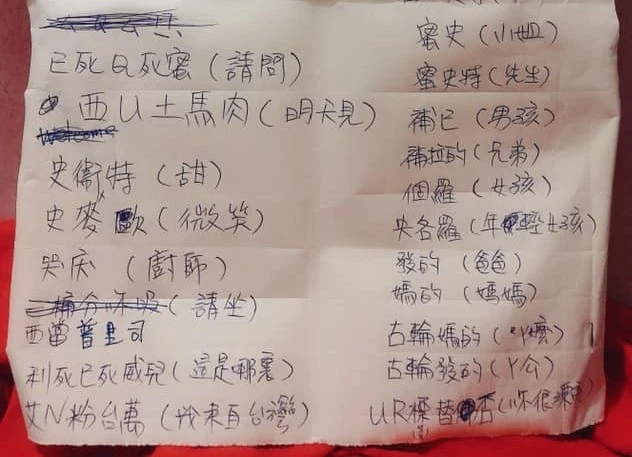 已死Q死蜜（請問）
西U土馬肉（明天見）
史衛特（甜）
史麥歐（微笑）
哭庆（廚師）
（請坐）
西當普里司
利死已死威兒（這是哪裏）
艾N粉台萬（我來自台灣）
蜜史（小姐）
蜜史特（先生）
補已（男孩）
補拉的（兄弟）
個羅（女孩）
央各羅（年輕女孩）
發的（爸爸）
媽的（媽媽）
古輪媽的（ㄚ嬤）
古輪發的（ㄚ公）
UR標替否（你很漂亮）